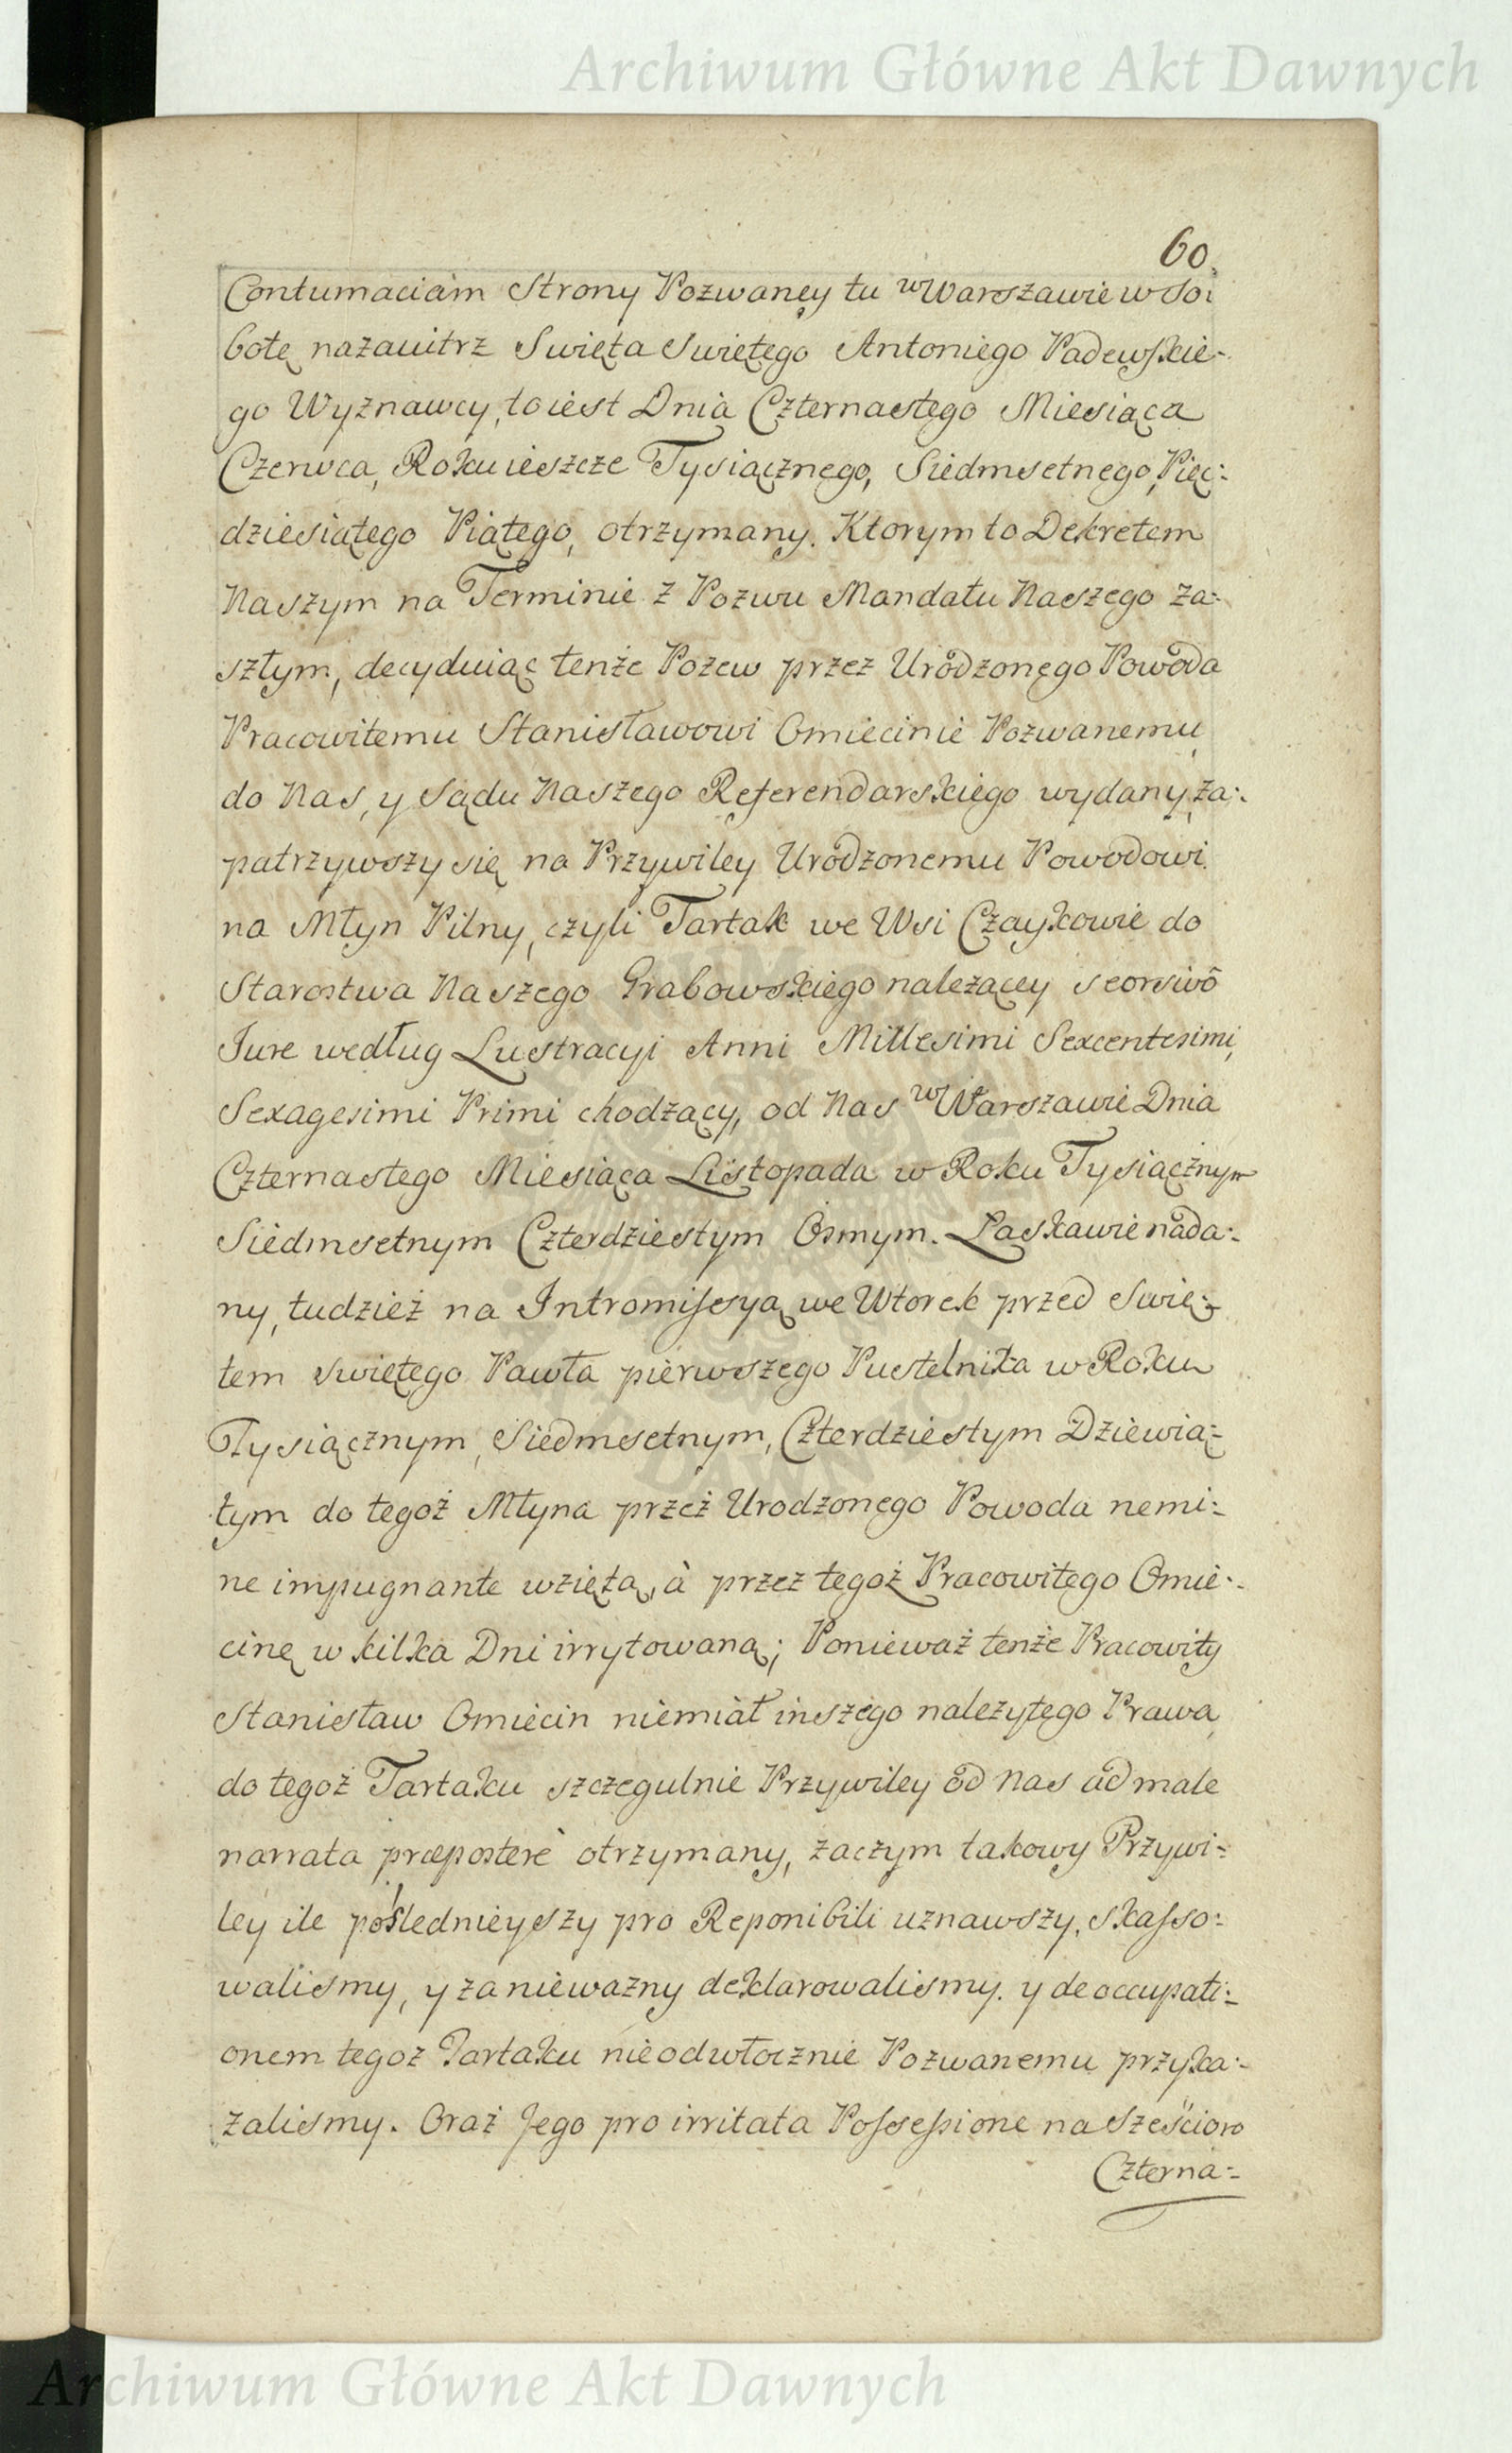 Archiwum Główne Akt Dawnych
60.
Contumaciàm Strony Pozwaney tu w Warszawie w So:
botę nazaiutrz Swięta Swiętego Antoniego Padewskie:
go Wyznawcy, to iest Dnia Czternastego Miesiąca
Czerwca, Roku ieszcze Tysiącznego, Siedmsetnego, Pięc:
dziesiątego Piątego, otrzymany. Ktorym to Dekretem
Naszym na Terminie z Pozwu Mandatu Naszego za:
szłym, decyduiąc tenże Pozew przez Urodzonego Powoda
Pracowitemu Stanisławowi Omiecinie Pozwanemu
do Nas, y Sądu Naszego Referendarskiego wydany, za:
patrzywszy się na Przywiley Urodzonemu Powodowi
na Młyn Pilny, czyli Tartak we Wsi Czaykowie do
Starostwa Naszego Grabowskiego należącey seorsivô
Iure według Lustracyi Anni Millesimi Sexcentesimi,
Sexagesimi Primi chodzący, od Nas w Warszawie Dnia
Czternastego Miesiąca Listopada w Roku Tysiącznym
Siedmsetnym Czterdziestym Osmym. Łaskawie nada:
ny, tudzież na Intromissyą we Wtorek przed Swię:
tem Swiętego Pawła pierwszego Pustelnika w Roku
Tysiącznym, Siedmsetnym, Czterdziestym Dziewią:
tym do tegoż Młyna przez Urodzonego Powoda nemi:
ne impugnante wziętą, à przez tegoż Pracowitego Omie:
cinę w kilka Dni irrytowaną; Ponieważ tenże Pracowity
Stanisław Omiecin niemiał inszego należytego Prawa
do tegoż Tartaku szczegulnie Przywiley od Nas ad male
narrata præposterè otrzymany, zaczym takowy Przywi:
ley ile poślednieyszy pro Reponibili uznawszy, skasso:
walismy, y za nieważny deklarowalismy. y deoccupati:
onem tegoż Tartaku nieodwłocznie Pozwanemu przyka:
zalismy. Oraz Jego pro irritata Possessione na sześcioro
Czterna:
Archiwum Główne Akt Dawnych